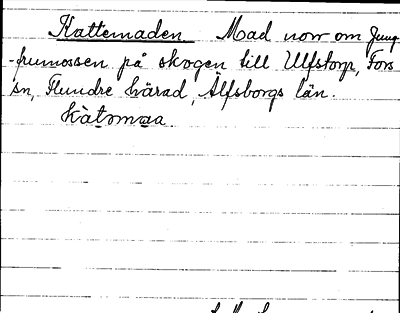 Kattemaden Mad norr om Jung-
-frumossen på skogen till Ulfstorp, Fors
sn, Flundre härad, Älfsborgs län.